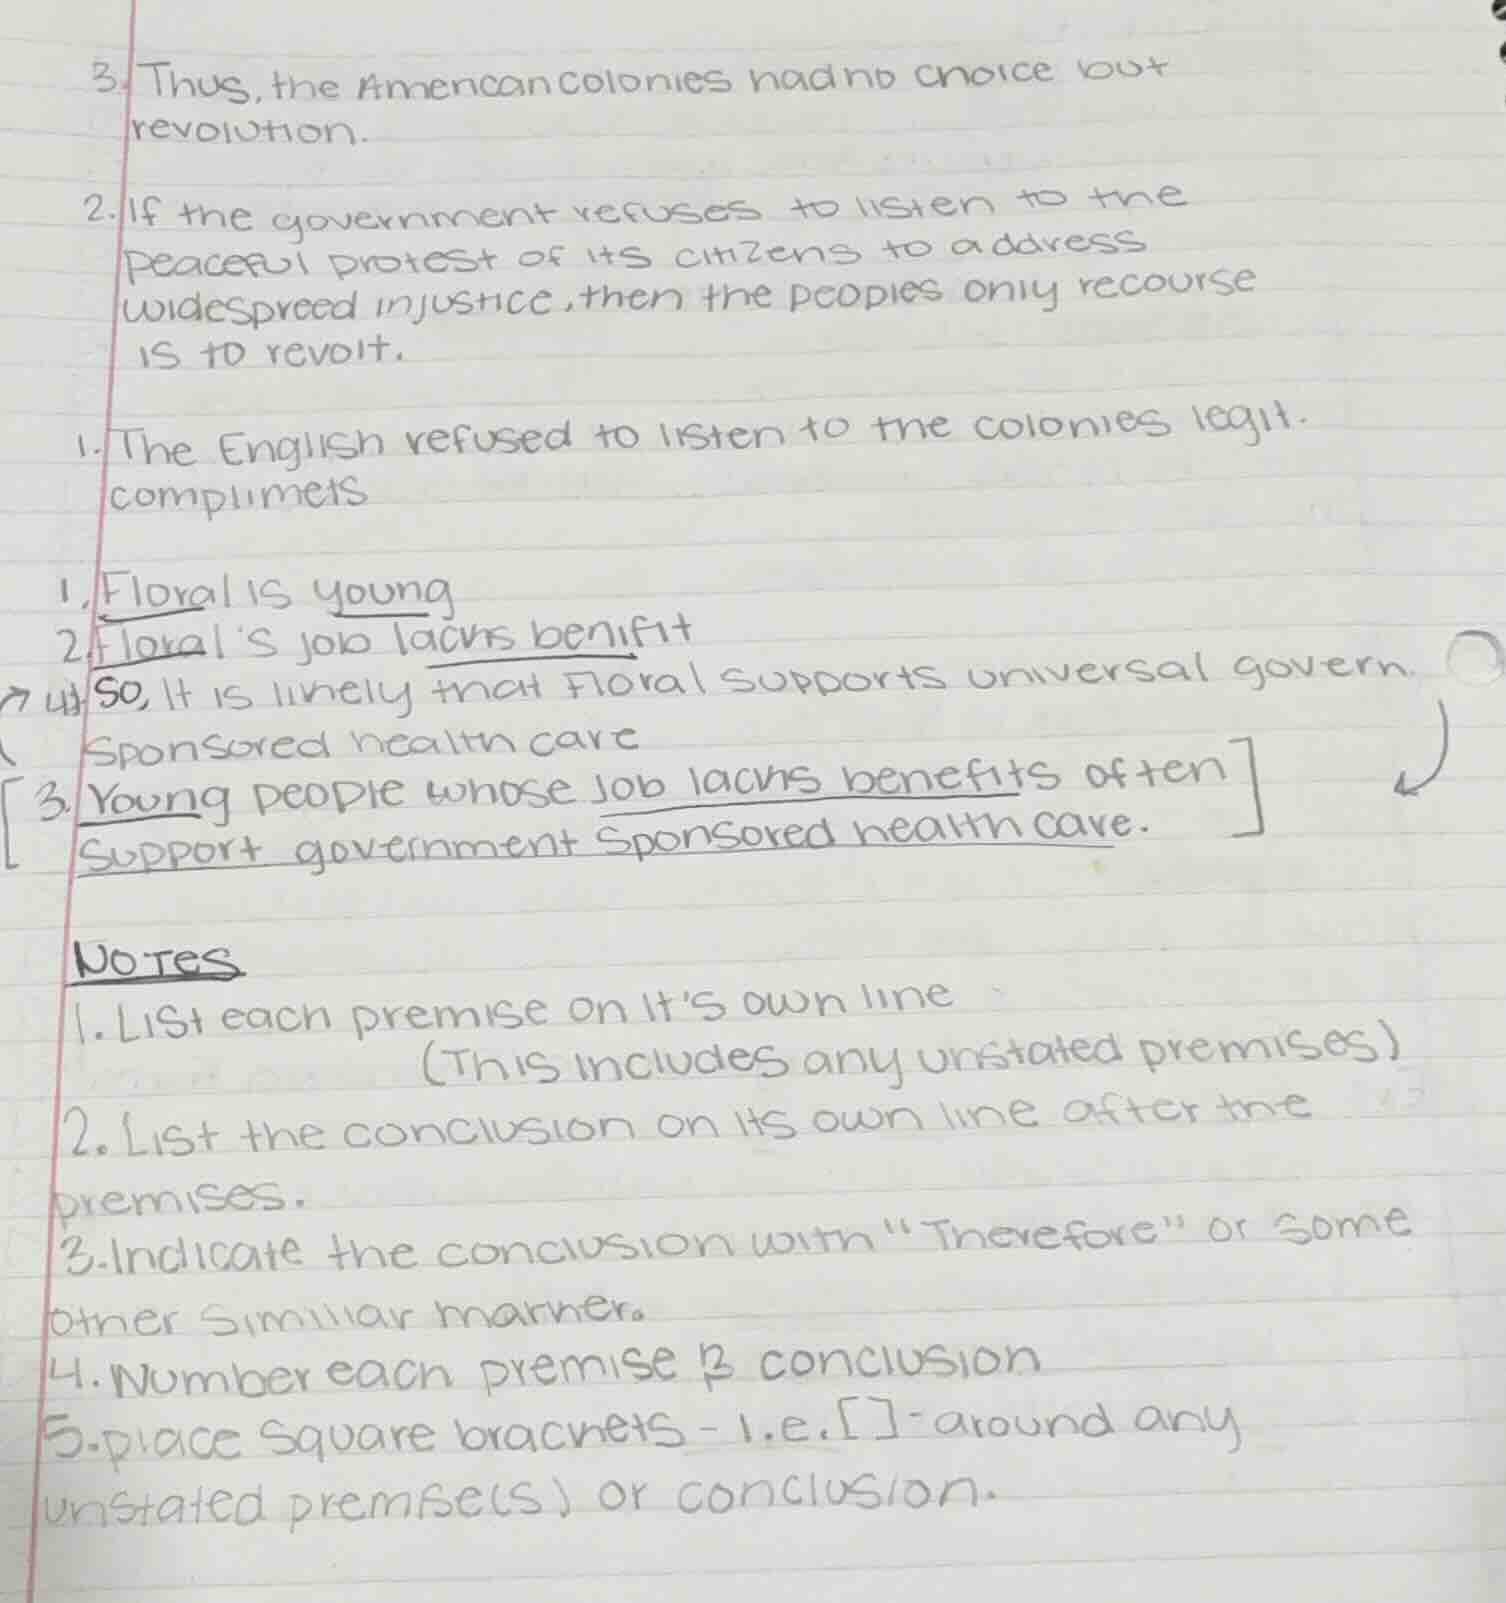 3. Thus, the American colonies had no choice but
revolution.
2. If the government refuses to listen to the
peaceful protest of its citizens to address
widespreed injustice, then the peoples only recourse
is to revolt.
1. The English refused to listen to the colonies legit.
complimets
1. Floral is young
2. Floral's job lacks benifit
4) So, It is likely that Floral supports universal govern.
sponsored health care
[3. Young people whose job lacks benefits often]
support government sponsored health care.
Notes
1. List each premise on it's own line
(This includes any unstated premises)
2. List the conclusion on its own line after the
premises.
3. Indicate the conclusion with "Therefore" or some
other similiar manner.
4. Number each premise & conclusion
5. place square brackets - i.e. [ ] - around any
unstated premise(s) or conclusion.